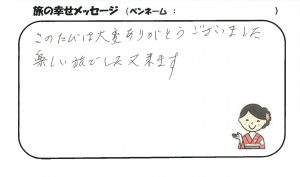 旅の幸せメッセージ (ペンネーム： )
このたびは大変ありがとうございました
楽しい旅でした又来ます